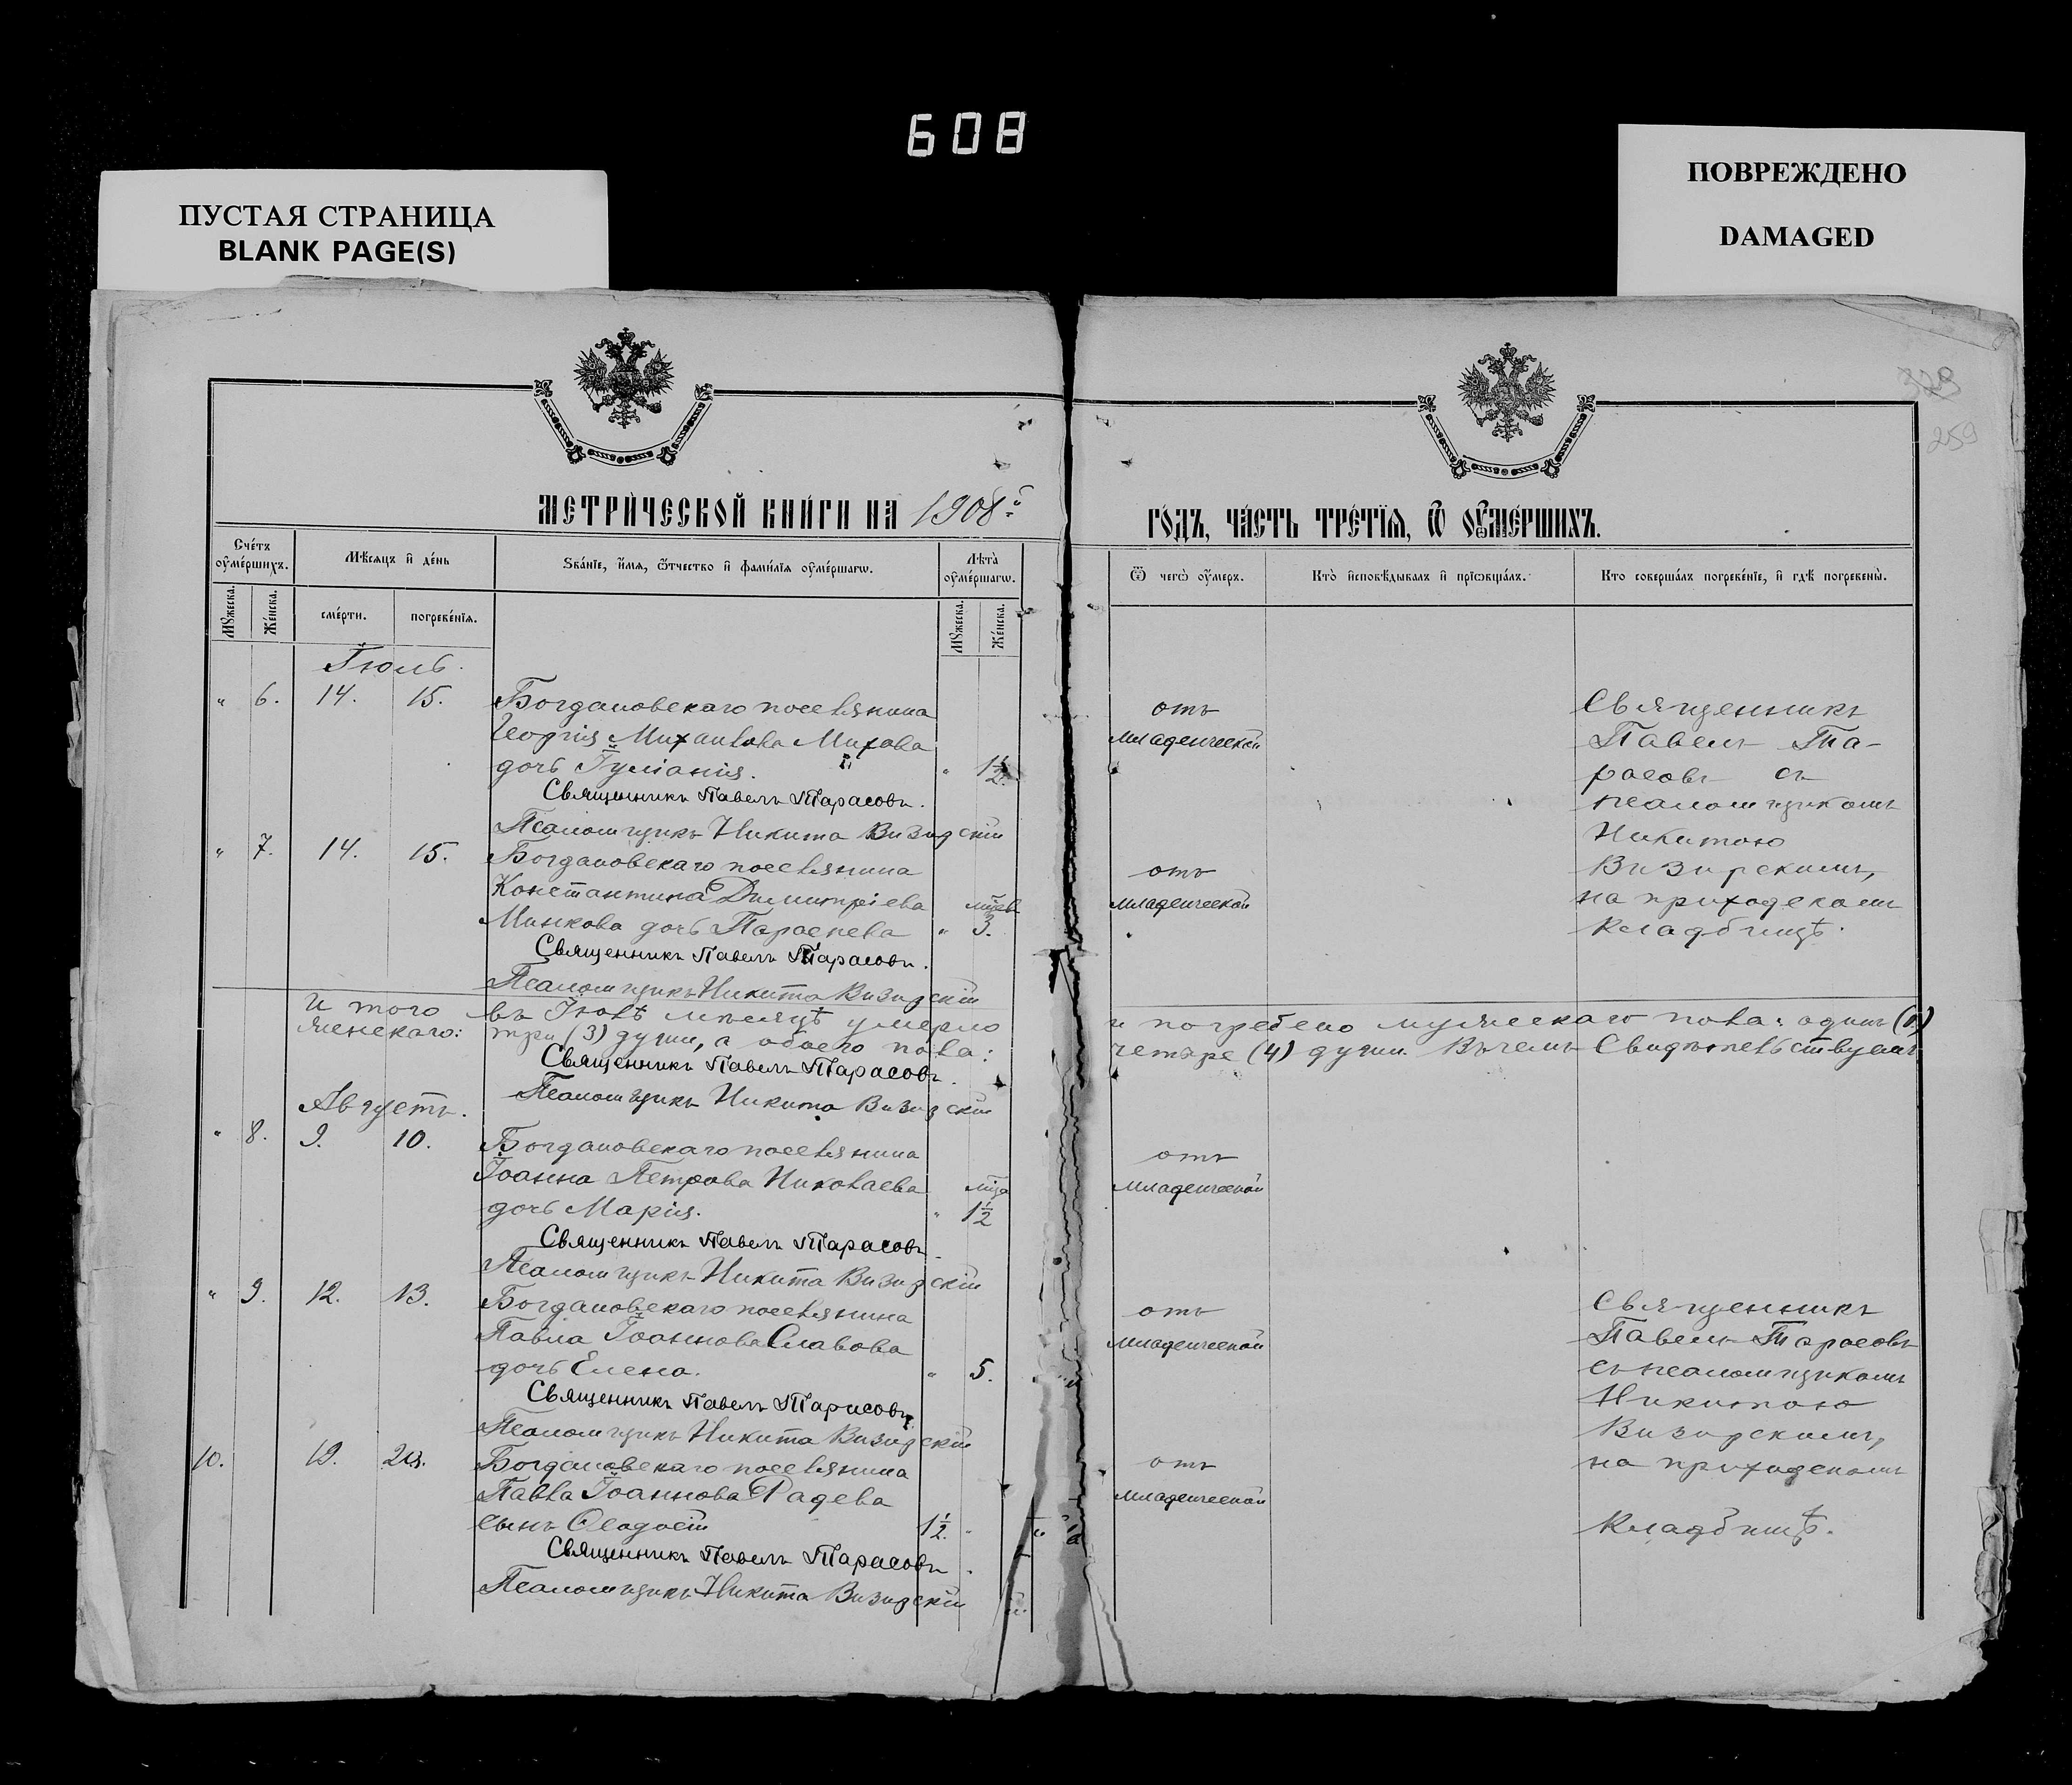 608
ПУСТАЯ СТРАНИЦА
BLANK PAGE(S)
ПОВРЕЖДЕНО
DAMAGED
259
МЕТРИ́ЧЕСКОЙ КНИ́ГИ НА 1908й
ГО́ДЪ, ЧА́СТЬ ТРЕ́ТЇѦ, Ѿ ОУ҆МЕ́РШИХЪ.
Сче́тъ оу҆ме́ршихъ.
Мѣ́сѧцъ и҆ де́нь
Ѕва́нїе, и҆́мѧ, ѻ҆́тчество и҆ фами́лїѧ оу҆ме́ршагѡ.
Лѣ́та оу҆ме́ршагѡ.
Ѿ чегѡ̀ оу҆́меръ.
Кто̀ и҆сповѣ́дывалъ и҆ прїѡбща́лъ.
Кто соверша́лъ погребе́нїе, и҆ гдѣ̀ погребены̀.
Мꙋ́жеска.
Же́нска.
сме́рти.
погребе́нїѧ.
Мꙋ́жеска.
Же́нска.
Іюль.
" 6. 14. 15. Богдановскаго поселянина
Георгія Михаилова Михова
дочь Іуліанія. " 1½
Священникъ Павелъ Тарасовъ.
Псаломщикъ Никита Визирскій
отъ
младенческой
Священникъ
Павелъ Та-
расовъ съ
псаломщикомъ
Никитою
Визирскимъ,
на приходскомъ
кладбищѣ.
" 7. 14. 15. Богдановскаго поселянина
Константина Димитріева
Минкова дочь Параскева " 3.
Священникъ Павелъ Тарасовъ.
Псаломщикъ Никита Визирскій
отъ
младенческой
И того въ Іюлѣ мѣсяцѣ умерло и погребено мужескаго пола: одинъ (1)
женскаго: три (3) души, а обоего пола: четыре (4) души. Въ чемъ свидѣтельствуемъ
Священникъ Павелъ Тарасовъ.
Псаломщикъ Никита Визирскій
Августъ.
" 8. 9. 10. Богдановскаго поселянина
Іоанна Петрова Николаева
дочь Марія. " 1½
Священникъ Павелъ Тарасовъ.
Псаломщикъ Никита Визирскій
отъ
младенческой
" 9. 12. 13. Богдановскаго поселянина
Павла Іоаннова Славова
дочь Елена. " 5.
Священникъ Павелъ Тарасовъ.
Псаломщикъ Никита Визирскій
отъ
младенческой
Священникъ
Павелъ Тарасовъ
съ псаломщикомъ
Никитою
Визирскимъ,
на приходскомъ
кладбищѣ.
10. 19. 20. Богдановскаго поселянина
Павла Іоаннова Радева
сынъ 1½ "
Священникъ Павелъ Тарасовъ.
Псаломщикъ Никита Визирскій
отъ
младенческой